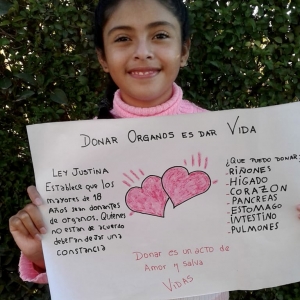 Donar Organos es dar Vida
Ley Justina
Establece que los
mayores de 18
años sean donantes
de organos. Quienes
no estan de acuerdo
deberan dejar una
constancia
¿Que puedo donar?
- Riñones
- Hígado
- Corazon
- Pancreas
- Estomago
- Intestino
- Pulmones
Donar es un acto de
Amor y salva
Vidas